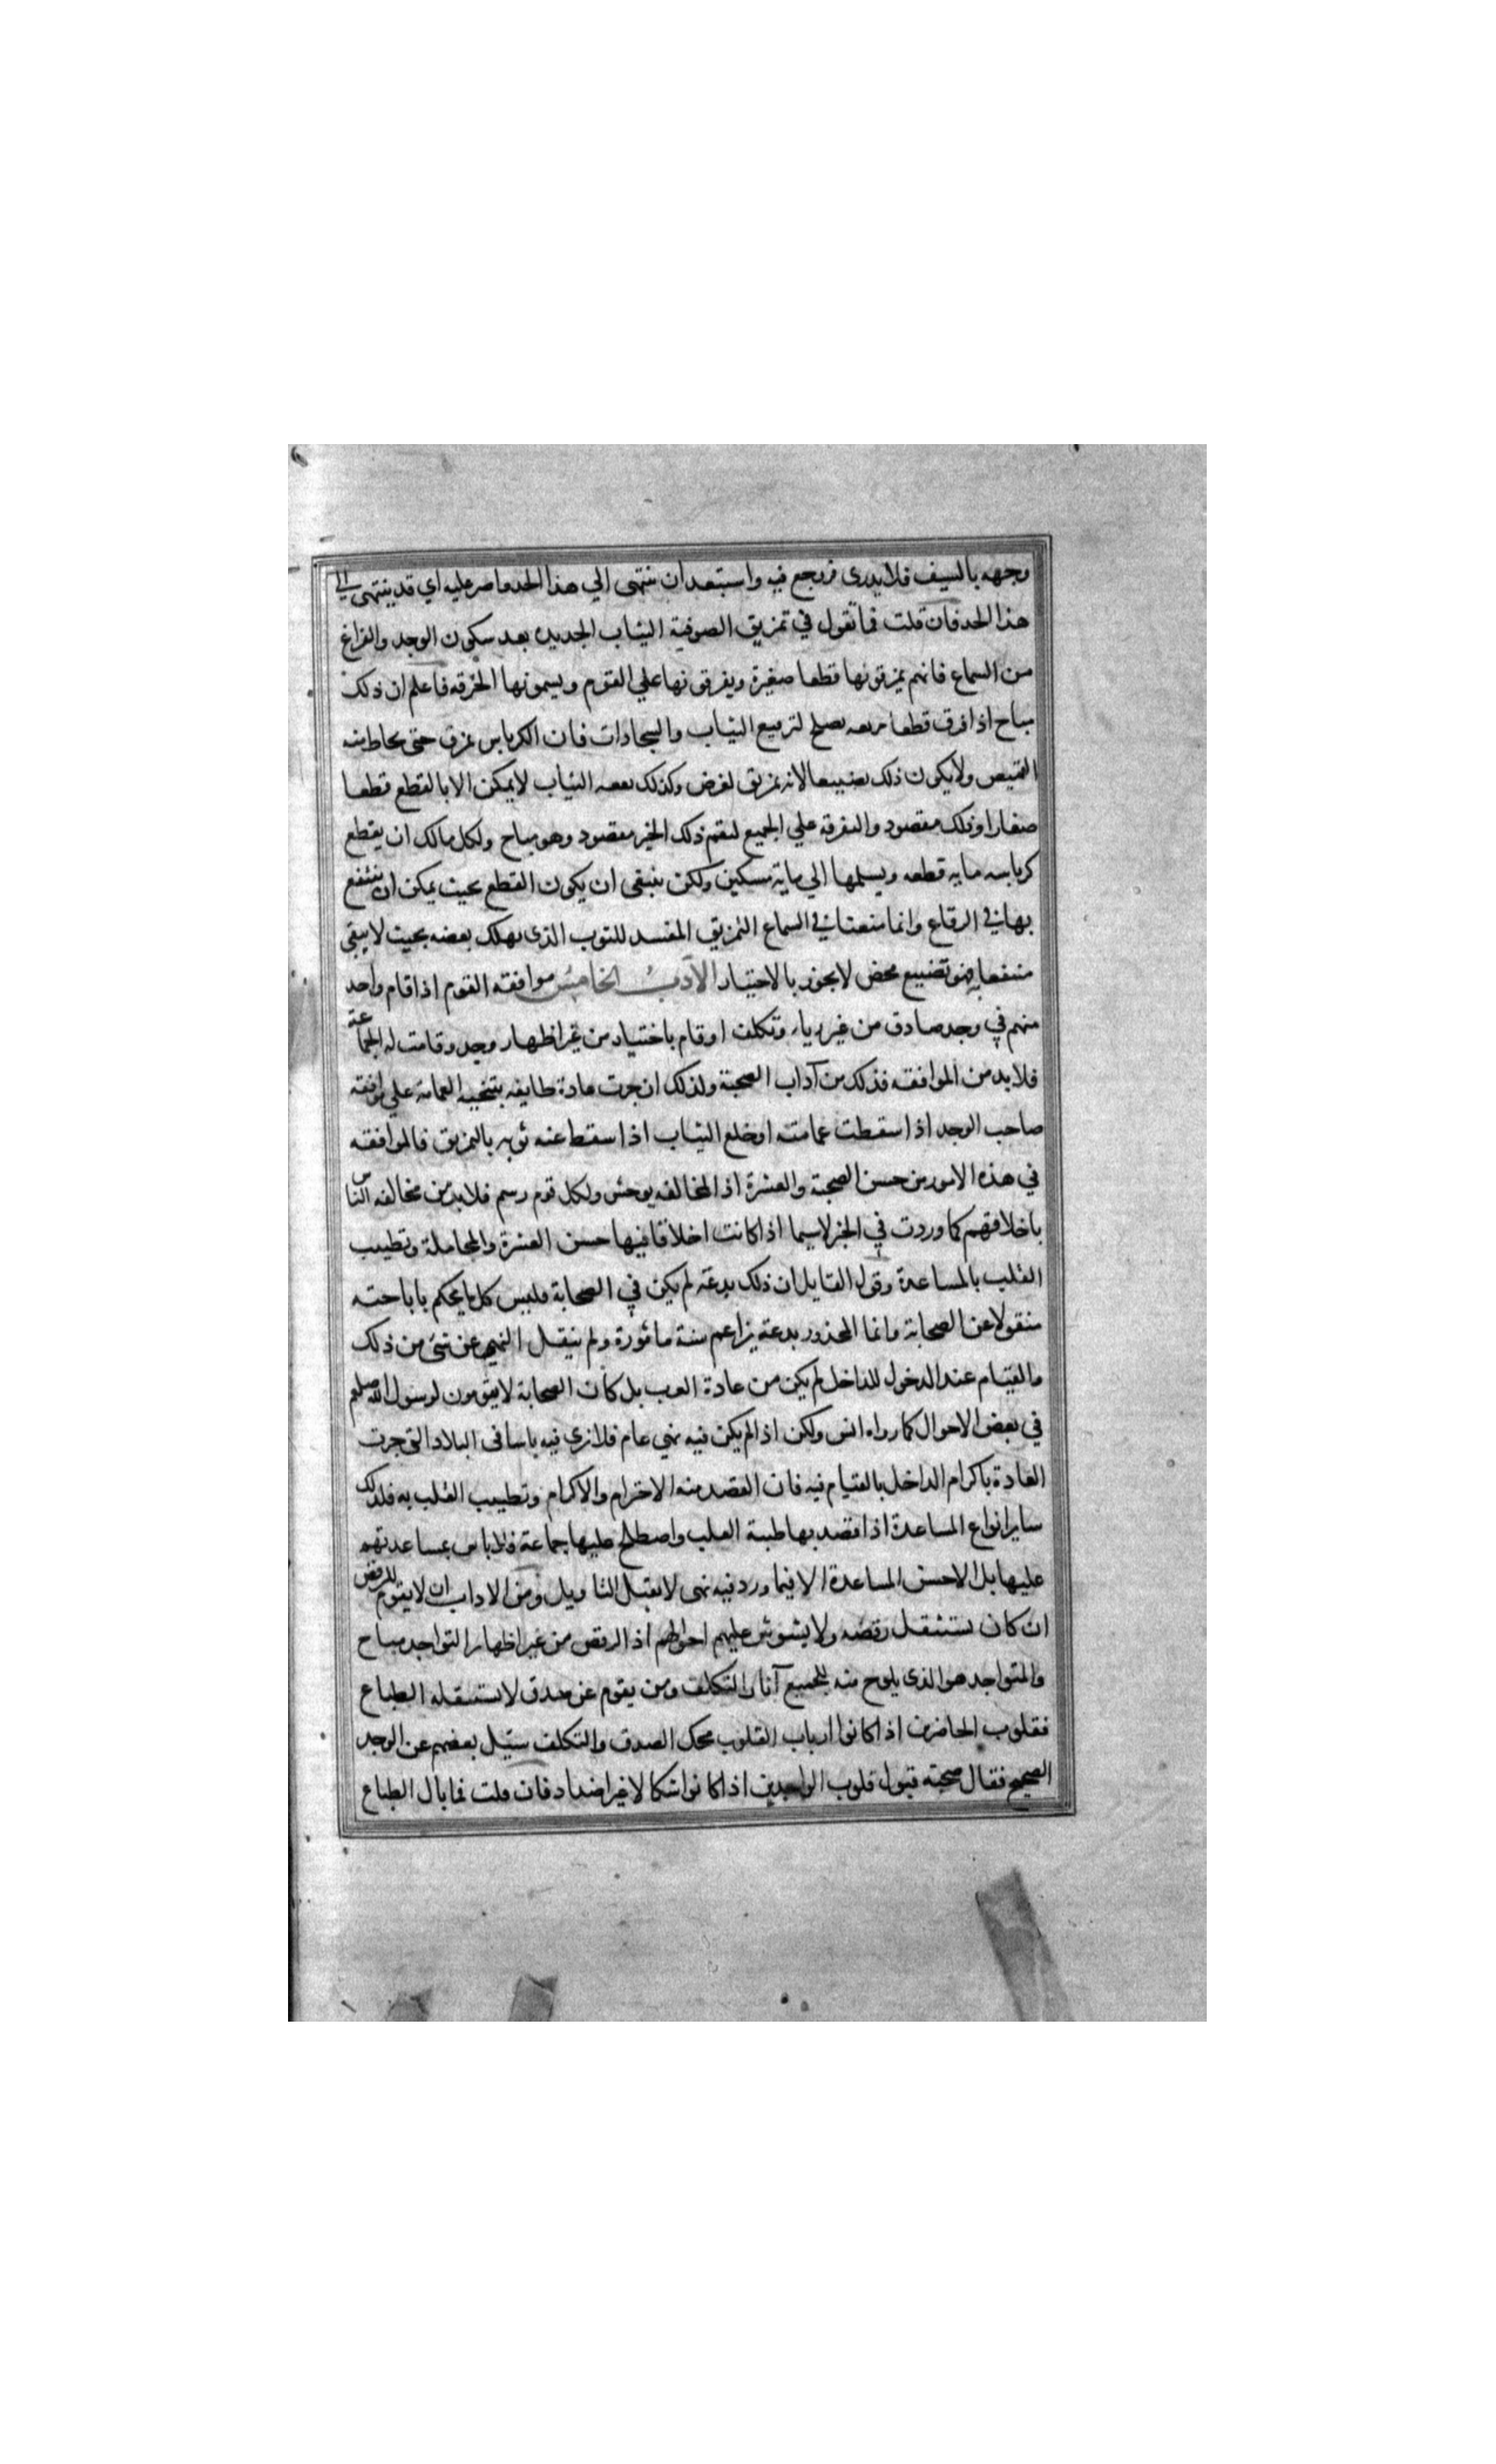 وجهه بالسيف فلا يدرى فروجع فيه واستبعد ان ينتهى الي هذا الحد فاصر عليه اي قد ينتهى الي
هذا الحد فان قلت فما تقول في تمزيق الصوفية الثياب الجديده بعد سكون الوجد والفراغ
من السماع فانهم يمزقونها قطعا صغيرة ويفرقونها علي القوم ويسمونها الخرقه فاعلم ان ذلك
مباح اذا فرق قطعا مربعه يصلح لترسيع الثياب والسجادات فان الكرباس يمزق حتى يخاط منه
القميص ولا يكون ذلك تضييعا لانه تمزيق لغرض وكذلك بعضه الثياب لا يمكن الا بالقطع قطعا
صغارا وذلك مقصود والتفرقه علي الجميع ليعم ذلك الخير مقصود وهو مباح ولكل مالك ان يقطع
كرباسه مايه قطعه ويسلمها الي ماية مسكين ولكن ينبغى ان يكون القطع بحيث يمكن ان ينتفع
بها في الرقاع وانما منعنا في السماع التمزيق المفسد للثوب الذى يهلك بعضه بحيث لا يبقى
منتفعا به فهو تضييع محض لا يجوز بالاختيار الادب الخامس موافقه القوم اذا قام واحد
منهم في وجد صادق من غير رياء وتكلف او قام باختيار من غير اظهار وجد وقامت له الجماعة
فلا بد من الموافقه فذلك من آداب الصحبة ولذلك ان جرت عادة طايفه بتنحيه العمامه علي موافقة
صاحب الوجد اذا سقطت عمامته او خلع الثياب اذا سقط عنه ثوبه بالتمزيق فالموافقه
في هذه الامور من حسن الصحبة والعشرة اذ المخالفه يوحش ولكل قوم رسم فلا بد من مخالفه الناس
باخلاقهم كما وردت في الخبر لاسيما اذا كانت اخلاقا فيها حسن العشرة والمجاملة وتطييب
القلب بالمساعدة وقول القايل ان ذلك بدعة لم يكن في الصحابة فليس كل ما يحكم باباحته
منقولا عن الصحابة وانما المحذور بدعة يزاعم سنة ماثورة ولم ينقل النهي عن شئ من ذلك
والقيام عند الدخول للداخل لم يكن من عادة العرب بل كان الصحابة لا يقومون لرسول الله صلعم
في بعض الاحوال كما رواه انس ولكن اذ الم يكن فيه نهي عام فلا نري فيه باسا فى البلاد التى جرت
العادة باكرام الداخل بالقيام فيه فان القصد منه الاحترام والاكرام وتطييب القلب به فلذلك
ساير انواع المساعدة اذا قصد بها طيبة القلب واصطلح عليها جماعة فلا باس بمساعدتهم
عليها بل الاحسن المساعدة الا فيما ورد فيه نهى لا يقبل التاويل ومن الاداب ان لا يقوم للرقص
ان كان يستثقل رقصه ولا يشوش عليهم احوالهم اذ الرقص من غير اظهار التواجد مباح
والمتواجد هو الذى يلوح منه للجميع آثار التكلف ومن يقوم عن صدق لا تستثقله الطباع
فقلوب الحاضرين اذا كانوا ارباب القلوب محك الصدق والتكلف سئيل بعضهم عن الوجد
الصحيح فقال صحته قبول قلوب الواجدين اذا كانوا اشكالا غير اضداد فان قلت فما بال الطباع